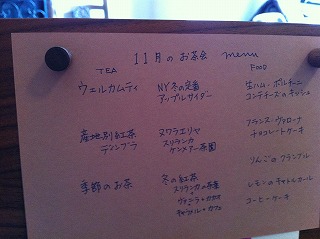 11月のお茶会 menu
TEA
FOOD
ウェルカムティ
NY冬の定番
アップルサイダー
生ハム・ポルチーニ
コンテチーズのキッシュ
産地別紅茶
ディンブラ
ヌワラエリヤ
スリランカ
ケンメアー茶園
フランス・ヴァローナ
チョコレートケーキ
りんごのクランブル
季節のお茶
冬の紅茶
スリランカの茶葉
+
ヴァニラ・カカオ
+
キャラメル・カフェ
レモンの
コーヒーケーキ